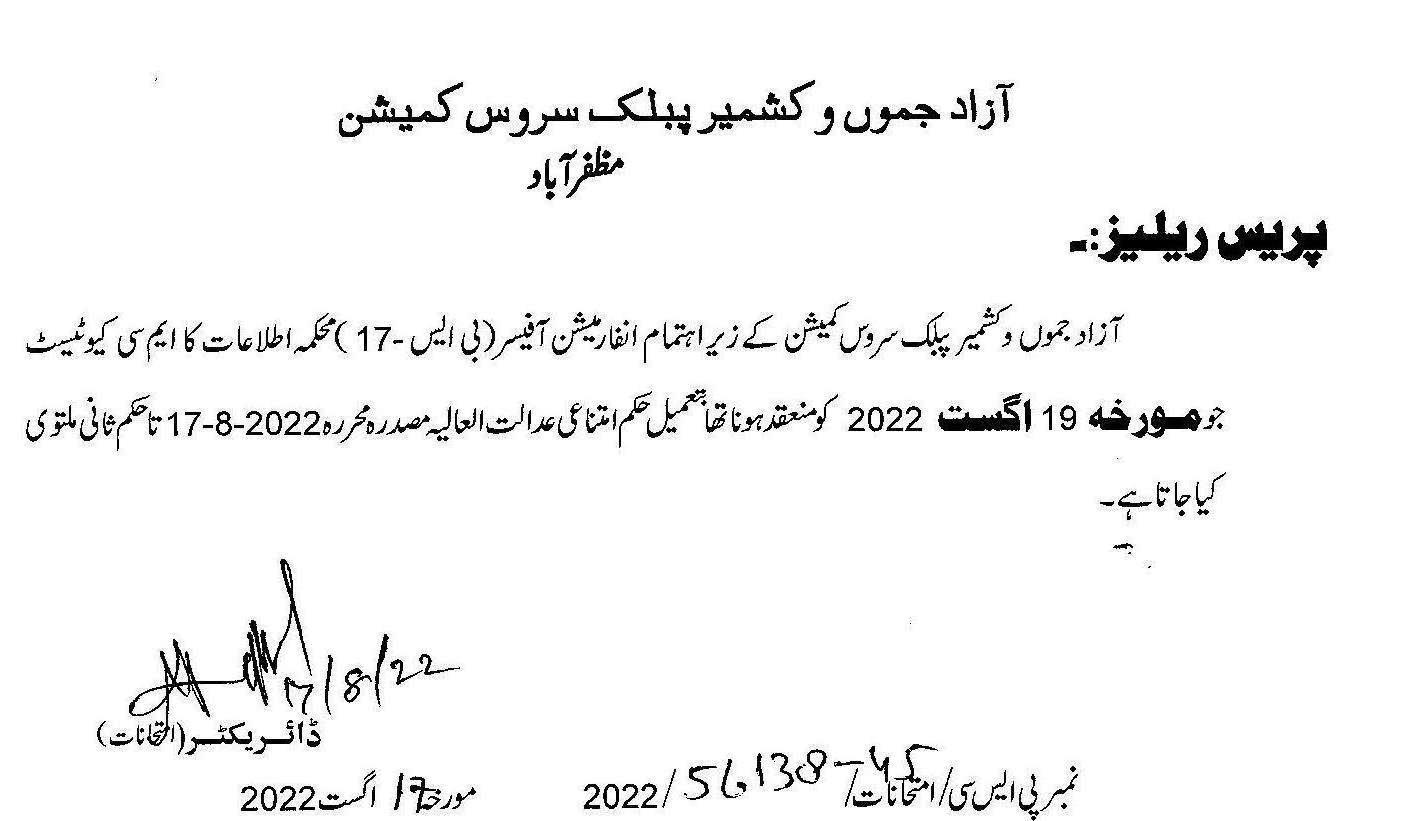 آزاد جموں و کشمیر پبلک سروس کمیشن
مظفرآباد
پریس ریلیز:۔
آزاد جموں و کشمیر پبلک سروس کمیشن کے زیر اہتمام انفارمیشن آفیسر (بی ایس -17) محکمہ اطلاعات کا ایم سی کیو ٹیسٹ
جو مورخہ 19 اگست 2022 کو منعقد ہونا تھا بتعمیل حکم امتناعی عدالت العالیہ مصدرہ محررہ 17-8-2022 تا حکم ثانی ملتوی
کیا جاتا ہے۔
17/8/22
ڈائریکٹر (امتحانات)
نمبر پی ایس سی/امتحانات/56138-45/2022 مورخہ 17 اگست 2022